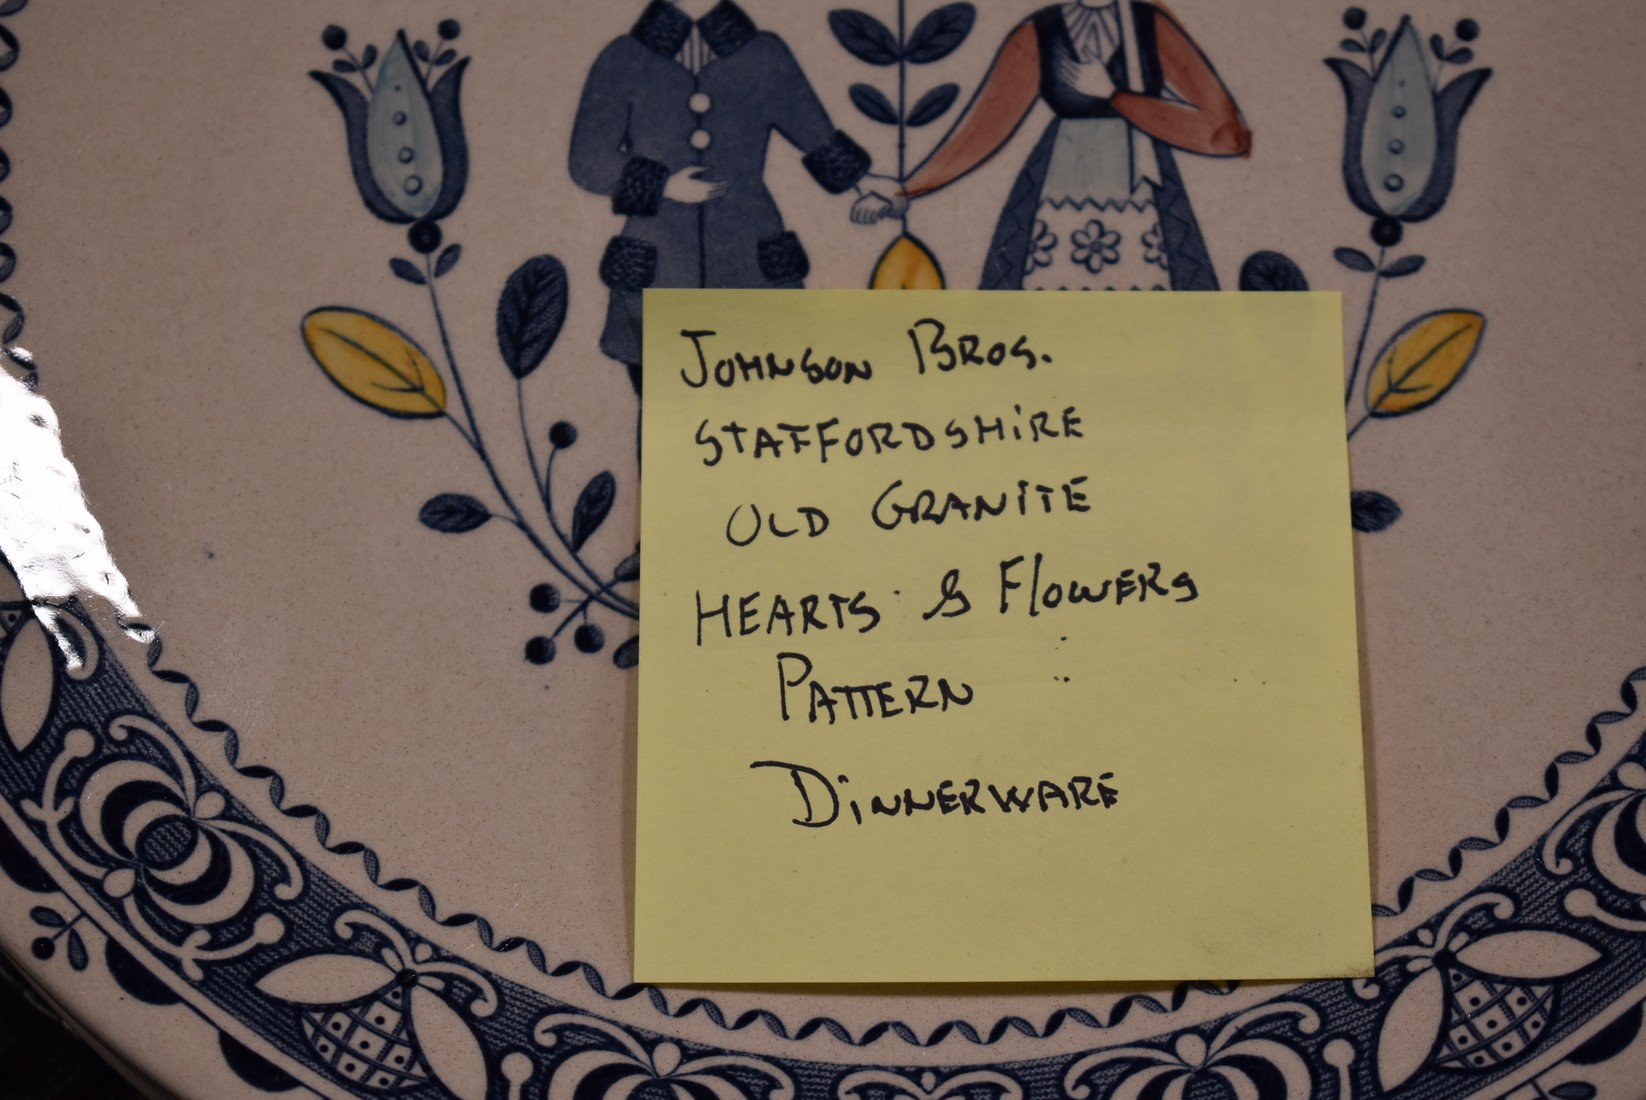 JOHNSON BROS.
STAFFORDSHIRE
OLD GRANITE
HEARTS & FLOWERS
PATTERN
DINNERWARE